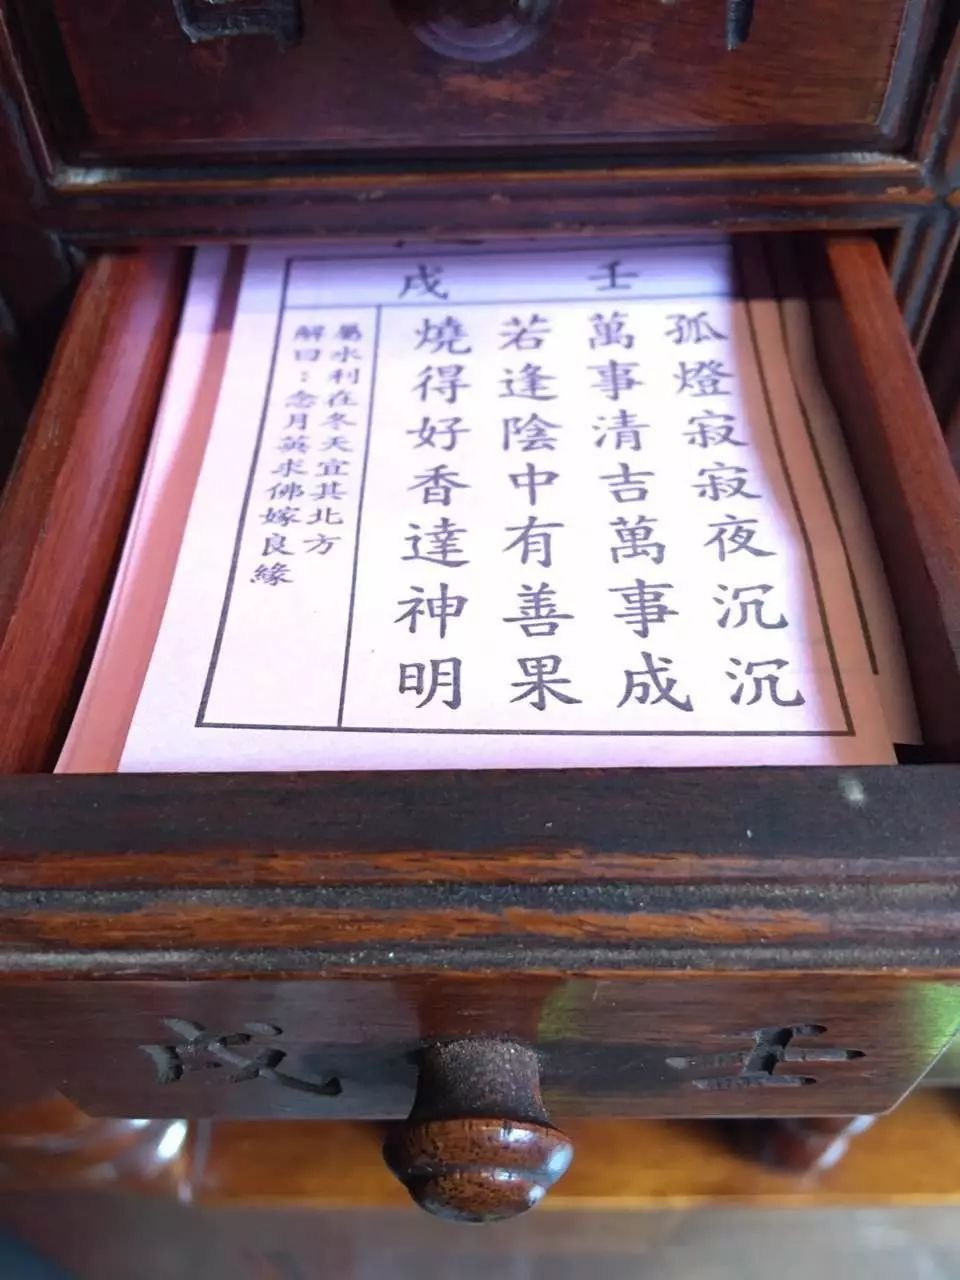 壬戌
孤燈寂寂夜沉沉
萬事清吉萬事成
若逢陰中有善果
燒得好香達神明
屬水利在冬天宜其北方
解曰：念月英求佛嫁良緣
壬戌